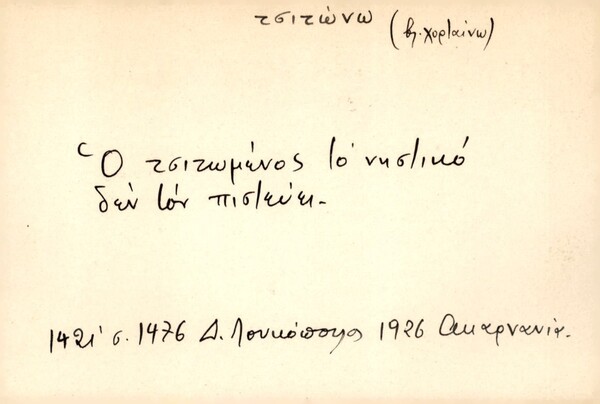 τσιτώνω
(βλ. χορταίνω)
Ὁ τσιτωμένος τὸ νηστικό
δὲν τὸν πιστεύει.
1421 σ. 1476 Δ. Λουκόπουλος 1926 Ακαρνανία.